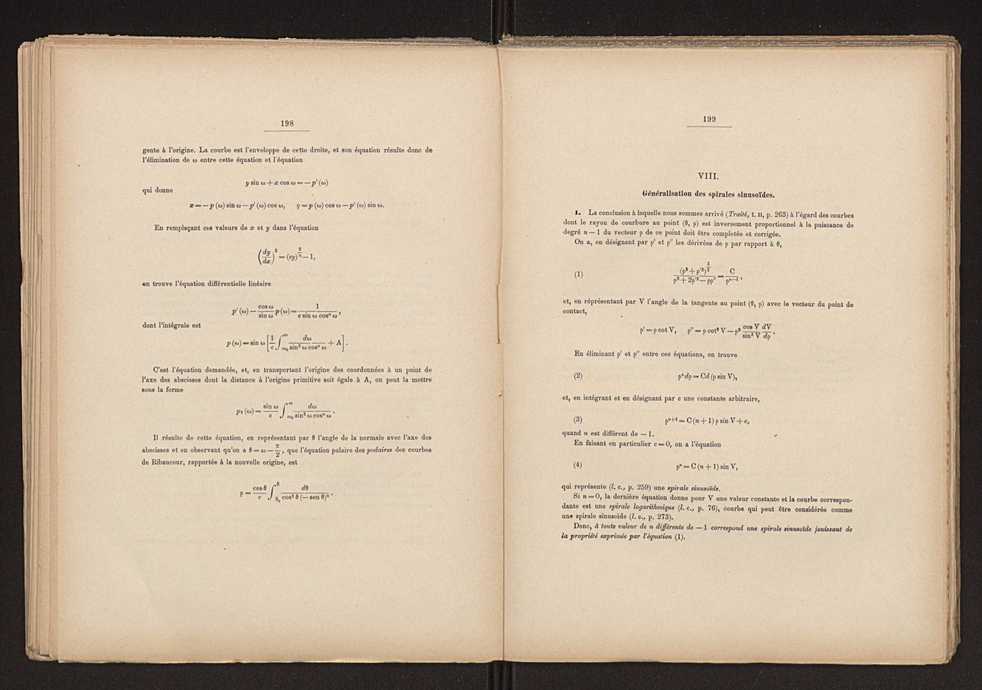 198
gente à l'origine. La courbe est l'enveloppe de cette droite, et son équation résulte donc de
l'élimination de ω entre cette équation et l'équation
y sin ω + x cos ω = — p' (ω)
qui donne
x = — p (ω) sin ω — p' (ω) cos ω, y = p (ω) cos ω — p' (ω) sin ω.
En remplaçant ces valeurs de x et y dans l'équation
(dy/dx)² = (ey)^(2/n) — 1,
on trouve l'équation différentielle linéaire
p' (ω) — (cos ω / sin ω) p (ω) = 1 / (e sin ω cosⁿ ω),
dont l'intégrale est
p (ω) = sin ω [ (1/e) ∫_{ω₀}^{ω} dω / (sin² ω cosⁿ ω) + A ].
C'est l'équation demandée, et, en transportant l'origine des coordonnées à un point de
l'axe des abscisses dont la distance à l'origine primitive soit égale à A, on peut la mettre
sous la forme
p₁ (ω) = (sin ω / e) ∫_{ω₀}^{ω} dω / (sin² ω cosⁿ ω).
Il résulte de cette équation, en représentant par θ l'angle de la normale avec l'axe des
abscisses et en observant qu'on a θ = ω — π/2, que l'équation polaire des podaires des courbes
de Ribaucour, rapportée à la nouvelle origine, est
ρ = (cos θ / e) ∫_{θ₀}^{θ} dθ / (cos² θ (— sen θ)ⁿ).
199
VIII.
Généralisation des spirales sinusoïdes.
1. La conclusion à laquelle nous sommes arrivé (Traité, t. II, p. 263) à l'égard des courbes
dont le rayon de courbure au point (θ, ρ) est inversement proportionnel à la puissance de
degré n — 1 du vecteur ρ de ce point doit être completée et corrigée.
On a, en désignant par ρ' et ρ'' les dérivées de ρ par rapport à θ,
(1) (ρ² + ρ'²)^(3/2) / (ρ² + 2ρ'² — ρρ'') = C / ρⁿ⁻¹,
et, en réprésentant par V l'angle de la tangente au point (θ, ρ) avec le vecteur du point de
contact,
ρ' = ρ cot V, ρ'' = ρ cot² V — ρ² (cos V / sin³ V) (dV/dρ).
En éliminant ρ' et ρ'' entre ces équations, on trouve
(2) ρⁿdρ = Cd (ρ sin V),
et, en intégrant et en désignant par c une constante arbitraire,
(3) ρⁿ⁺¹ = C (n + 1) ρ sin V + c,
quand n est différent de — 1.
En faisant en particulier c = 0, on a l'équation
(4) ρⁿ = C (n + 1) sin V,
qui représente (l. c., p. 259) une spirale sinusoïde.
Si n = 0, la dernière équation donne pour V une valeur constante et la courbe correspon-
dante est une spirale logarithmique (l. c., p. 76), courbe qui peut être considérée comme
une spirale sinusoïde (l. c., p. 273).
Donc, à toute valeur de n différente de — 1 correspond une spirale sinusoïde jouissant de
la propriété exprimée par l'équation (1).